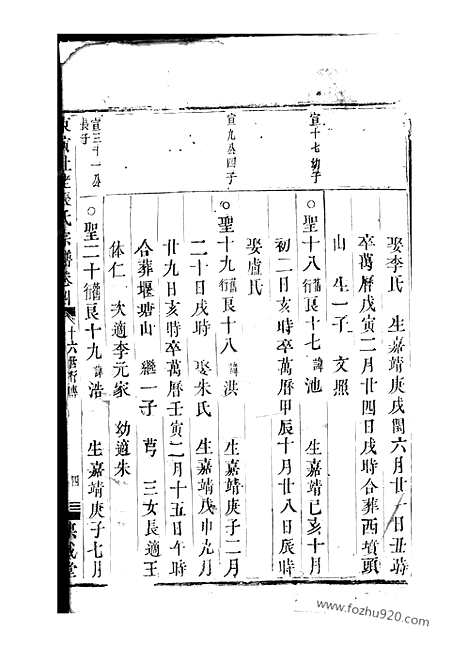 娶李氏 生嘉靖庚戌閏六月廿一日丑時
卒萬曆戊寅二月廿四日戌時合葬西墳頭
山 生一子 文照
宣十七幼子
○聖十八舊行良十七諱池 生嘉靖已亥十月
初二日亥時卒萬曆甲辰十月廿八日辰時
娶盧氏
宣九公四子
○聖十九舊行良十八諱洪 生嘉靖庚子二月
二十日戌時 娶朱氏 生嘉靖戊申九月
廿九日亥時卒萬曆壬寅二月十五日午時
合葬堰塘山 繼一子 芎 三女長適王
体仁 次適李元家 幼適朱
宣三十一公長子
○聖二十舊行良十九諱浩 生嘉靖庚子七月
氏宗譜卷四 十六世 四 堂
www.fozhu920.com